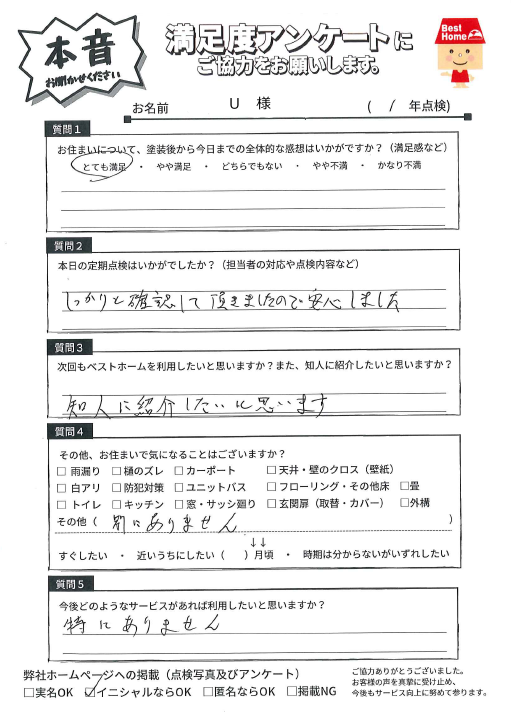 本音
お聞かせください
満足度アンケートに
ご協力をお願いします。
Best Home
お名前 U 様 ( / 年点検)
質問1
お住まいについて、塗装後から今日までの全体的な感想はいかがですか？（満足感など）
とても満足 ・ やや満足 ・ どちらでもない ・ やや不満 ・ かなり不満
質問2
本日の定期点検はいかがでしたか？（担当者の対応や点検内容など）
しっかりと確認して頂きましたので安心しました
質問3
次回もベストホームを利用したいと思いますか？また、知人に紹介したいと思いますか？
知人に紹介したいと思います
質問4
その他、お住まいで気になることはございますか？
□ 雨漏り □ 樋のズレ □ カーポート □ 天井・壁のクロス（壁紙）
□ 白アリ □ 防犯対策 □ ユニットバス □ フローリング・その他床 □畳
□ トイレ □ キッチン □ 窓・サッシ廻り □ 玄関扉（取替・カバー） □外構
その他（ 別にありません ）
↓↓
すぐしたい ・ 近いうちにしたい（ ）月頃 ・ 時期は分からないがいずれしたい
質問5
今後どのようなサービスがあれば利用したいと思いますか？
特にありません
弊社ホームページへの掲載（点検写真及びアンケート）
□実名OK ☑イニシャルならOK □匿名ならOK □掲載NG
ご協力ありがとうございました。
お客様の声を真摯に受け止め、
今後もサービス向上に努めて参ります。